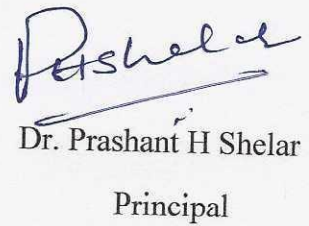 PHShelar
Dr. Prashant H Shelar
Principal